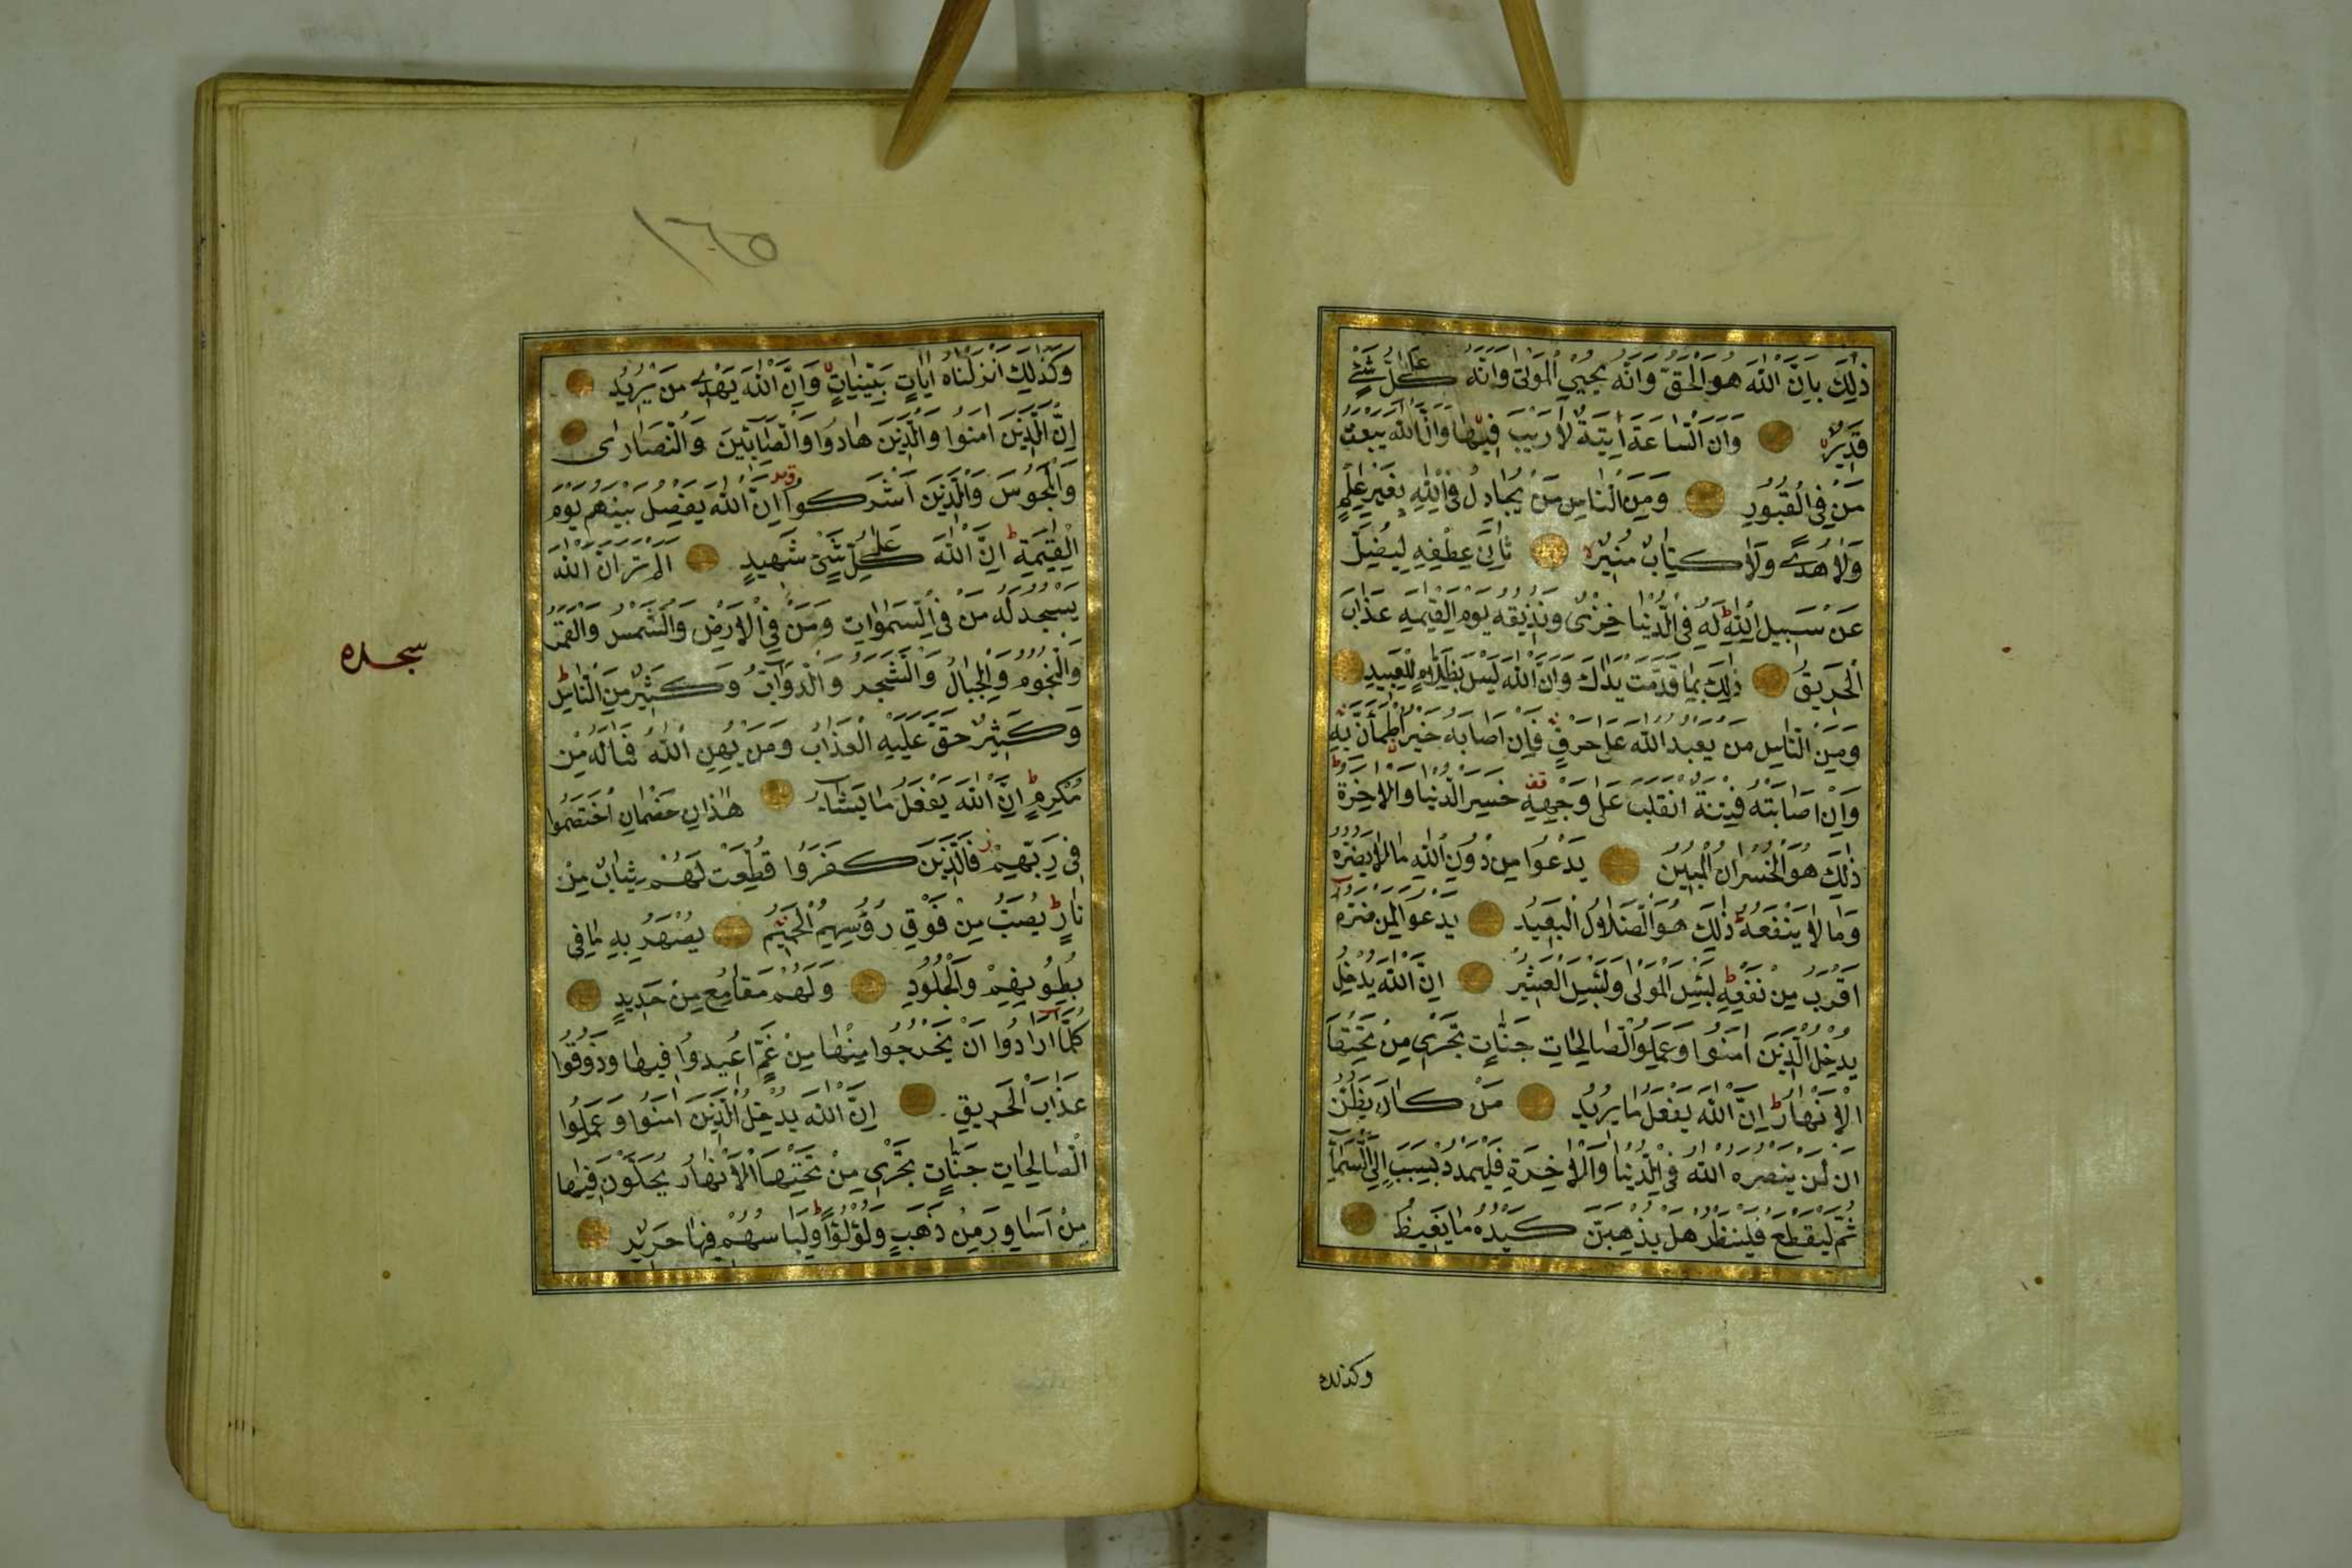 ذٰلِكَ بِاَنَّ اللّٰهَ هُوَ الْحَقُّ وَاَنَّهُ يُحْيِي الْمَوْتٰى وَاَنَّهُ عَلٰى كُلِّ شَيْءٍ
قَدِيرٌ وَاَنَّ السَّاعَةَ اٰتِيَةٌ لَا رَيْبَ فِيهَا وَاَنَّ اللّٰهَ يَبْعَثُ
مَنْ فِي الْقُبُورِ وَمِنَ النَّاسِ مَنْ يُجَادِلُ فِي اللّٰهِ بِغَيْرِ عِلْمٍ
وَلَا هُدًى وَلَا كِتَابٍ مُنِيرٍ ثَانِيَ عِطْفِهِ لِيُضِلَّ
عَنْ سَبِيلِ اللّٰهِ ط لَهُ فِي الدُّنْيَا خِزْيٌ وَنُذِيقُهُ يَوْمَ الْقِيٰمَةِ عَذَابَ
الْحَرِيقِ ذٰلِكَ بِمَا قَدَّمَتْ يَدَاكَ وَاَنَّ اللّٰهَ لَيْسَ بِظَلَّامٍ لِلْعَبِيدِ
وَمِنَ النَّاسِ مَنْ يَعْبُدُ اللّٰهَ عَلٰى حَرْفٍ فَاِنْ اَصَابَهُ خَيْرٌ اطْمَاَنَّ بِهِ
وَاِنْ اَصَابَتْهُ فِتْنَةٌ انْقَلَبَ عَلٰى وَجْهِهِ قف خَسِرَ الدُّنْيَا وَالْاٰخِرَةَ ط
ذٰلِكَ هُوَ الْخُسْرَانُ الْمُبِينُ يَدْعُوا مِنْ دُونِ اللّٰهِ مَا لَا يَضُرُّهُ
وَمَا لَا يَنْفَعُهُ ط ذٰلِكَ هُوَ الضَّلَالُ الْبَعِيدُ يَدْعُوا لَمَنْ ضَرُّهُ
اَقْرَبُ مِنْ نَفْعِهِ ط لَبِئْسَ الْمَوْلٰى وَلَبِئْسَ الْعَشِيرُ اِنَّ اللّٰهَ يُدْخِلُ
يُدْخِلُ الَّذِينَ اٰمَنُوا وَعَمِلُوا الصَّالِحَاتِ جَنَّاتٍ تَجْرِي مِنْ تَحْتِهَا
الْاَنْهَارُ ط اِنَّ اللّٰهَ يَفْعَلُ مَا يُرِيدُ مَنْ كَانَ يَظُنُّ
اَنْ لَنْ يَنْصُرَهُ اللّٰهُ فِي الدُّنْيَا وَالْاٰخِرَةِ فَلْيَمْدُدْ بِسَبَبٍ اِلَى السَّمَاءِ
ثُمَّ لْيَقْطَعْ فَلْيَنْظُرْ هَلْ يُذْهِبَنَّ كَيْدُهُ مَا يَغِيظُ
وكذلك
١٦٥
وَكَذٰلِكَ اَنْزَلْنَاهُ اٰيَاتٍ بَيِّنَاتٍ وَاَنَّ اللّٰهَ يَهْدِي مَنْ يُرِيدُ
اِنَّ الَّذِينَ اٰمَنُوا وَالَّذِينَ هَادُوا وَالصَّابِئِينَ وَالنَّصَارٰى
وَالْمَجُوسَ وَالَّذِينَ اَشْرَكُوا اِنَّ اللّٰهَ يَفْصِلُ بَيْنَهُمْ يَوْمَ
الْقِيٰمَةِ ط اِنَّ اللّٰهَ عَلٰى كُلِّ شَيْءٍ شَهِيدٌ اَلَمْ تَرَ اَنَّ اللّٰهَ
يَسْجُدُ لَهُ مَنْ فِي السَّمٰوَاتِ وَمَنْ فِي الْاَرْضِ وَالشَّمْسُ وَالْقَمَرُ
وَالنُّجُومُ وَالْجِبَالُ وَالشَّجَرُ وَالدَّوَابُّ وَكَثِيرٌ مِنَ النَّاسِ ط
سجده
وَكَثِيرٌ حَقَّ عَلَيْهِ الْعَذَابُ وَمَنْ يُهِنِ اللّٰهُ فَمَا لَهُ مِنْ
مُكْرِمٍ ط اِنَّ اللّٰهَ يَفْعَلُ مَا يَشَاءُ هٰذَانِ خَصْمَانِ اخْتَصَمُوا
فِي رَبِّهِمْ ز فَالَّذِينَ كَفَرُوا قُطِّعَتْ لَهُمْ ثِيَابٌ مِنْ
نَارٍ ط يُصَبُّ مِنْ فَوْقِ رُؤُسِهِمُ الْحَمِيمُ يُصْهَرُ بِهِ مَا فِي
بُطُونِهِمْ وَالْجُلُودُ وَلَهُمْ مَقَامِعُ مِنْ حَدِيدٍ
كُلَّمَا اَرَادُوا اَنْ يَخْرُجُوا مِنْهَا مِنْ غَمٍّ اُعِيدُوا فِيهَا وَذُوقُوا
عَذَابَ الْحَرِيقِ اِنَّ اللّٰهَ يُدْخِلُ الَّذِينَ اٰمَنُوا وَعَمِلُوا
الصَّالِحَاتِ جَنَّاتٍ تَجْرِي مِنْ تَحْتِهَا الْاَنْهَارُ يُحَلَّوْنَ فِيهَا
مِنْ اَسَاوِرَ مِنْ ذَهَبٍ وَلُؤْلُؤًا ط وَلِبَاسُهُمْ فِيهَا حَرِيرٌ